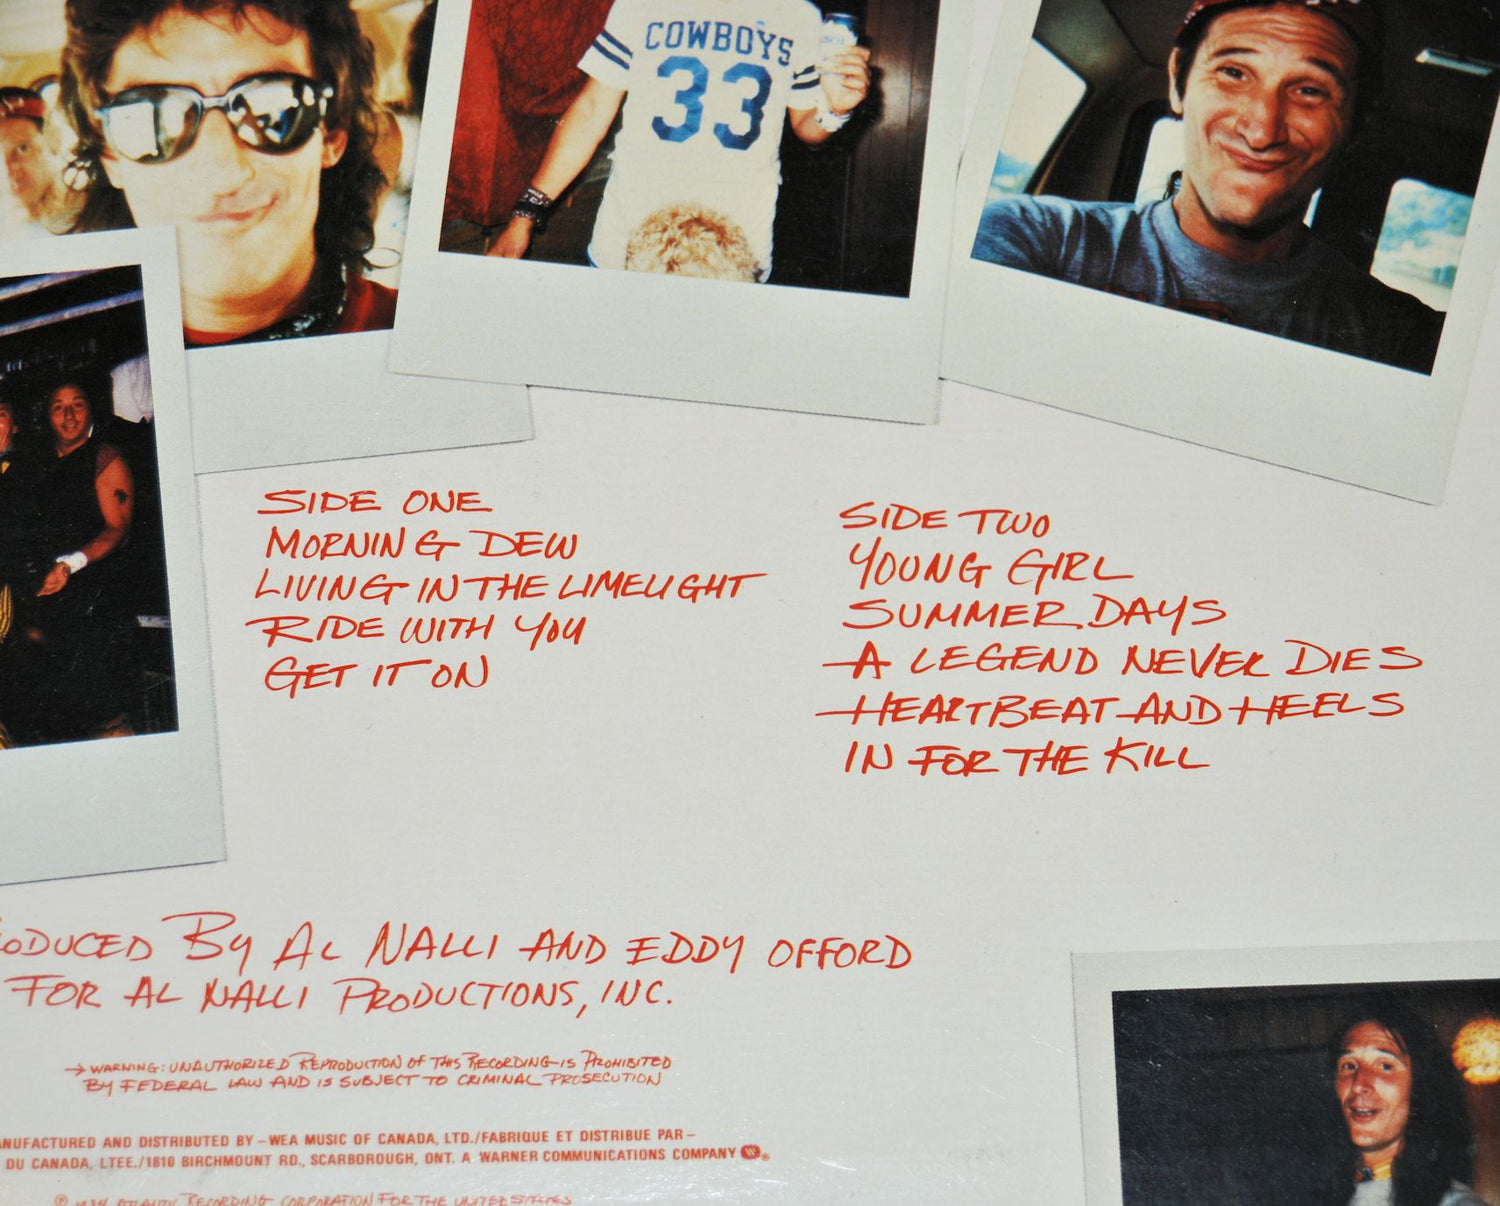 COWBOYS
33
SIDE ONE
MORNING DEW
LIVING IN THE LIMELIGHT
RIDE WITH YOU
GET IT ON
SIDE TWO
YOUNG GIRL
SUMMER DAYS
A LEGEND NEVER DIES
HEARTBEAT AND HEELS
IN FOR THE KILL
ODUCED BY AL NALLI AND EDDY OFFORD
FOR AL NALLI PRODUCTIONS, INC.
→ WARNING: UNAUTHORIZED REPRODUCTION OF THIS RECORDING IS PROHIBITED
BY FEDERAL LAW AND IS SUBJECT TO CRIMINAL PROSECUTION
ANUFACTURED AND DISTRIBUTED BY – WEA MUSIC OF CANADA, LTD./FABRIQUE ET DISTRIBUE PAR –
DU CANADA, LTEE./1810 BIRCHMOUNT RD., SCARBOROUGH, ONT. A WARNER COMMUNICATIONS COMPANY
ATLANTIC RECORDING CORPORATION FOR THE UNITED STATES